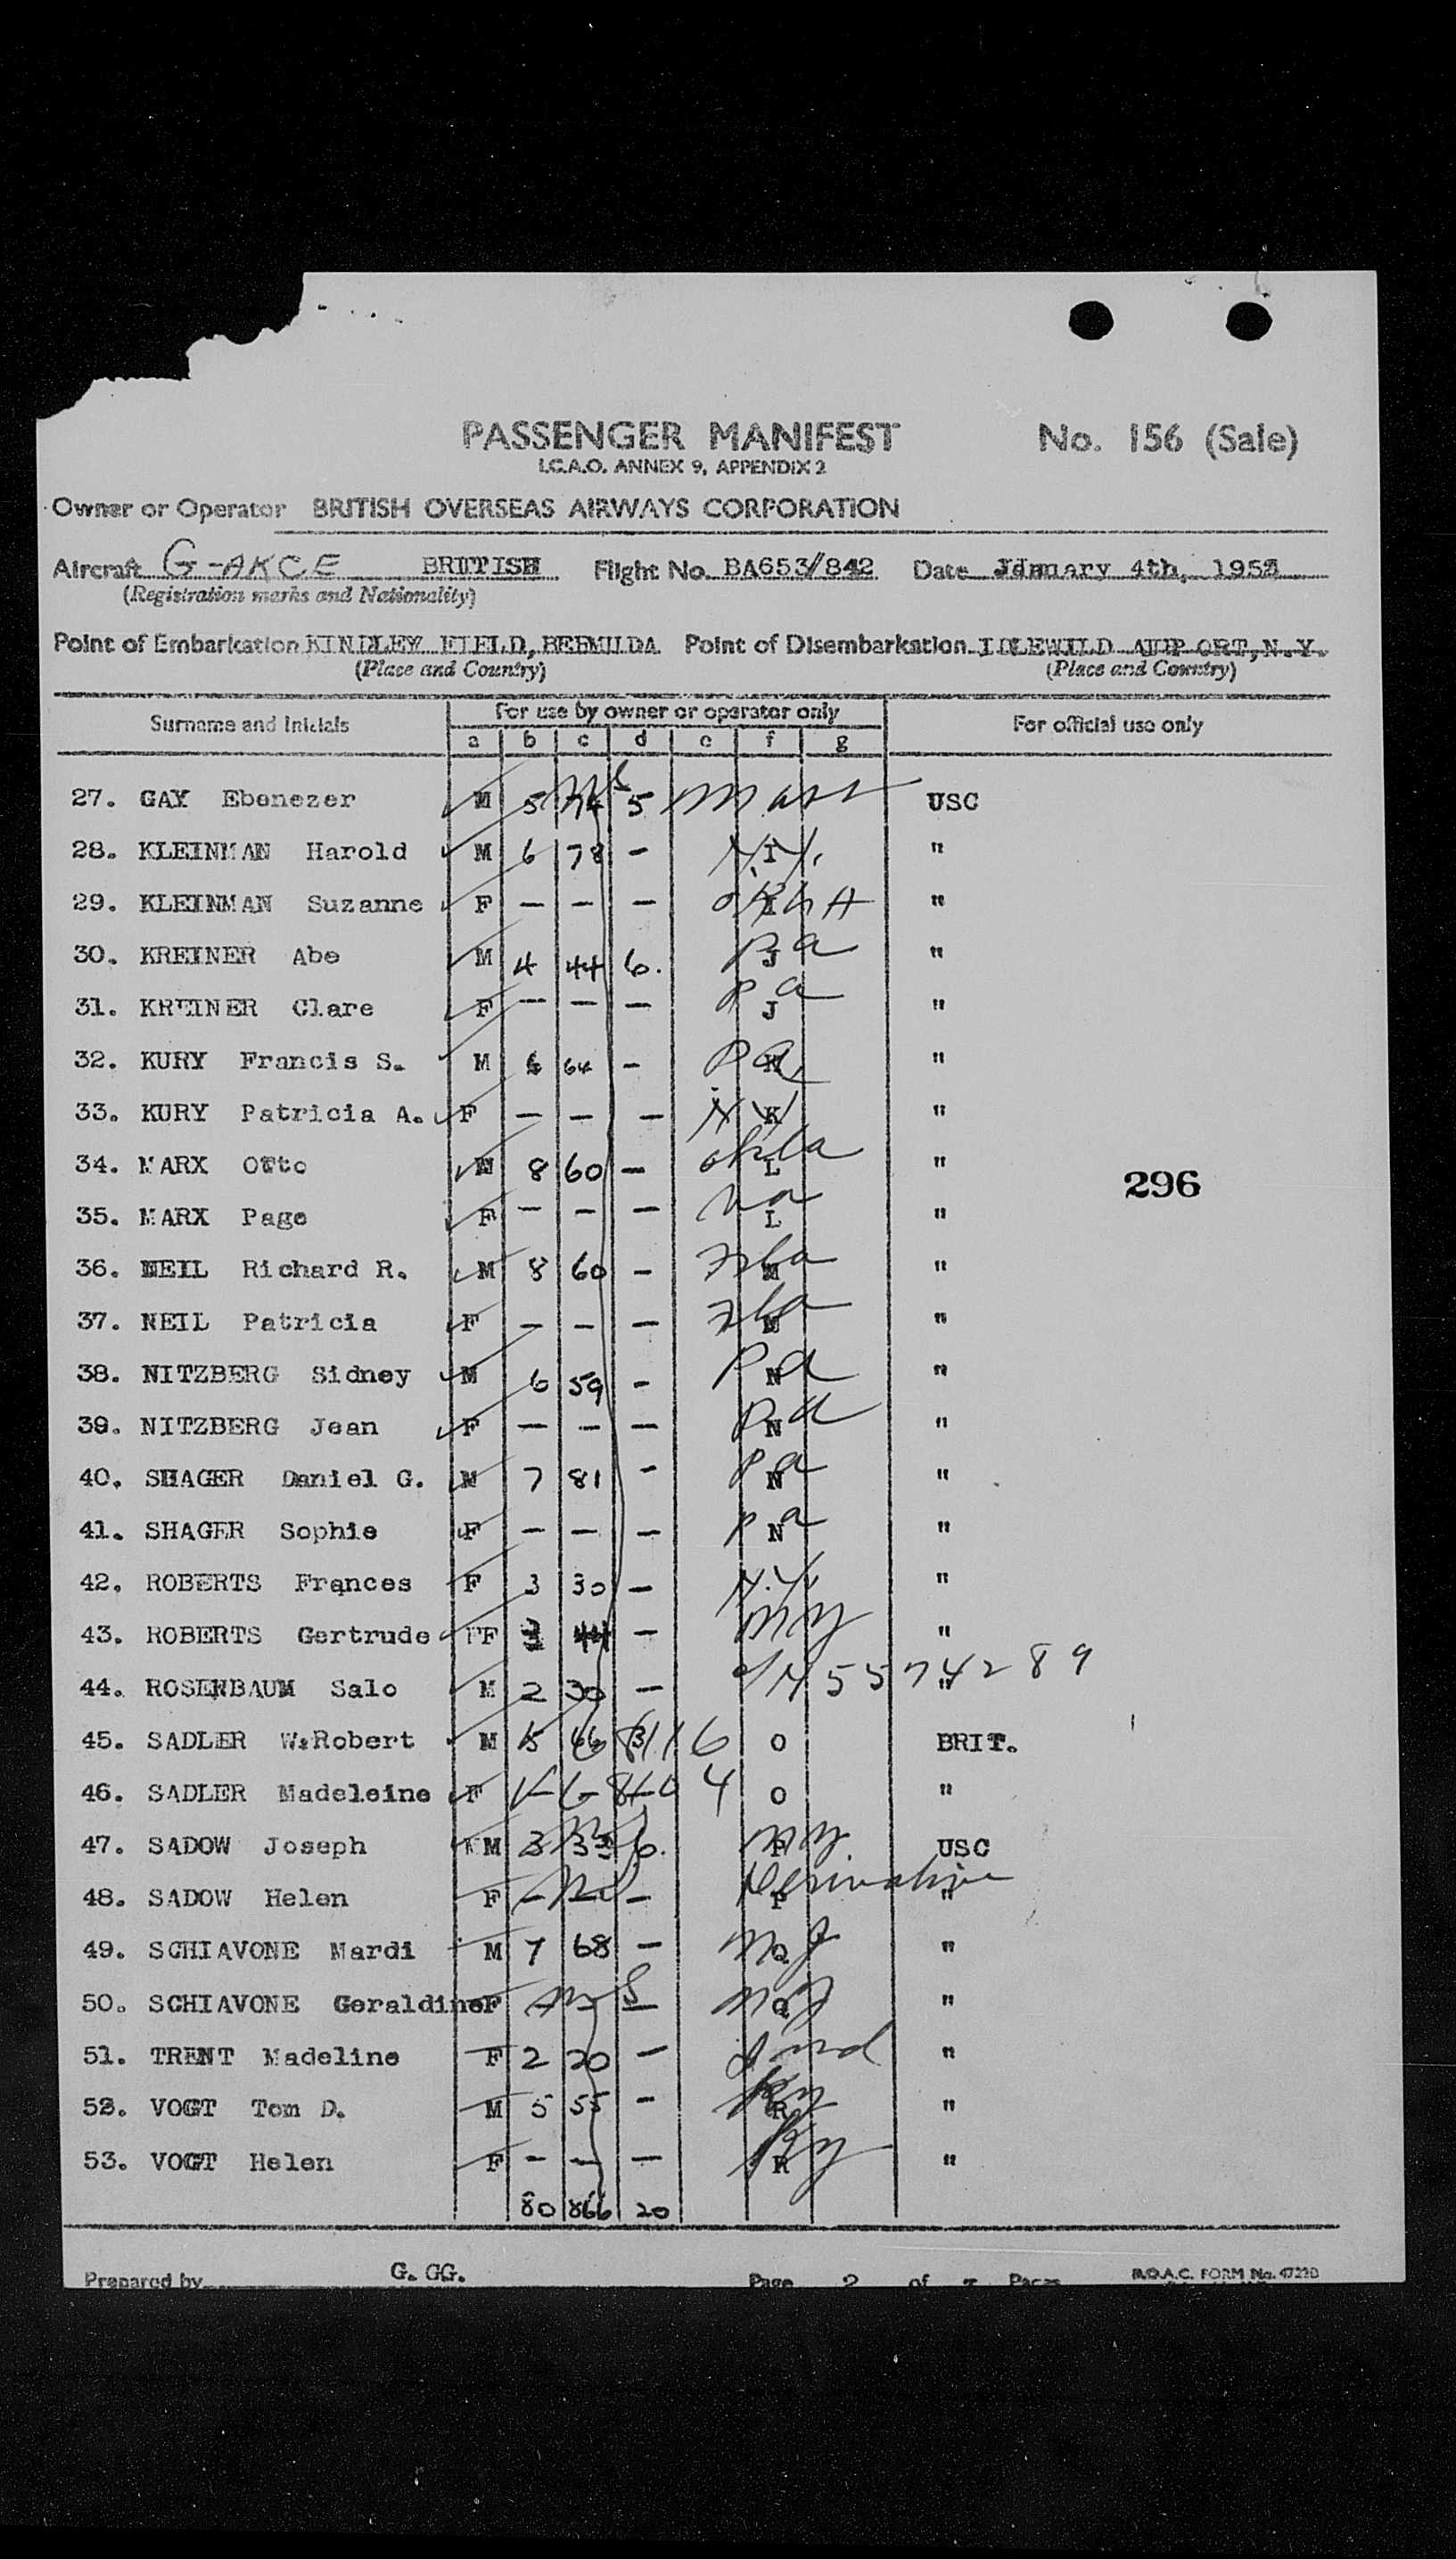 PASSENGER MANIFEST No. 156 (Sale)
I.C.A.O. ANNEX 9, APPENDIX 2
Owner or Operator BRITISH OVERSEAS AIRWAYS CORPORATION
Aircraft G-AKCE BRITISH Flight No. BA653/842 Date January 4th, 195
(Registration marks and Nationality)
Point of Embarkation KINDLEY FIELD, BERMUDA Point of Disembarkation IDLEWILD AIRPORT, N.Y.
(Place and Country) (Place and Country)
Surname and Initials For use by owner or operator only For official use only
a b c d e f g
27. GAY Ebenezer M 5 74 5 Mass USC
28. KLEINMAN Harold M 6 78 - N.Y. I "
29. KLEINMAN Suzanne F - - - I "
30. KREINER Abe M 4 44 6. Pa J "
31. KREINER Clare F - - - Pa J "
32. KURY Francis S. M 6 64 - Pa K "
33. KURY Patricia A. F - - - NY K "
34. MARX Otto M 8 60 - okla L "
35. MARX Page F - - - Va L "
36. NEIL Richard R. M 8 60 - M "
37. NEIL Patricia F - - - M "
38. NITZBERG Sidney M 6 59 - Pa N "
39. NITZBERG Jean F - - - Pa N "
40. SHAGER Daniel G. M 7 81 - Pa N "
41. SHAGER Sophie F - - - Pa N "
42. ROBERTS Frances F 3 30 - N.Y. "
43. ROBERTS Gertrude F 3 44 - NY "
44. ROSENBAUM Salo M 2 30 - 5574289 "
45. SADLER W.Robert M 5 66 6 O BRIT.
46. SADLER Madeleine F 4 O "
47. SADOW Joseph M 3 33 6. NY P USC
48. SADOW Helen F - - - Derivative P "
49. SCHIAVONE Mardi M 7 68 - NJ Q "
50. SCHIAVONE Geraldine F - - - NJ Q "
51. TRENT Madeline F 2 20 - Ind "
52. VOGT Tom D. M 5 55 - Ky R "
53. VOGT Helen F - - - Ky R "
80 866 20
296
Prepared by G. GG. Page 2 of Pages B.O.A.C. FORM No. 4722D